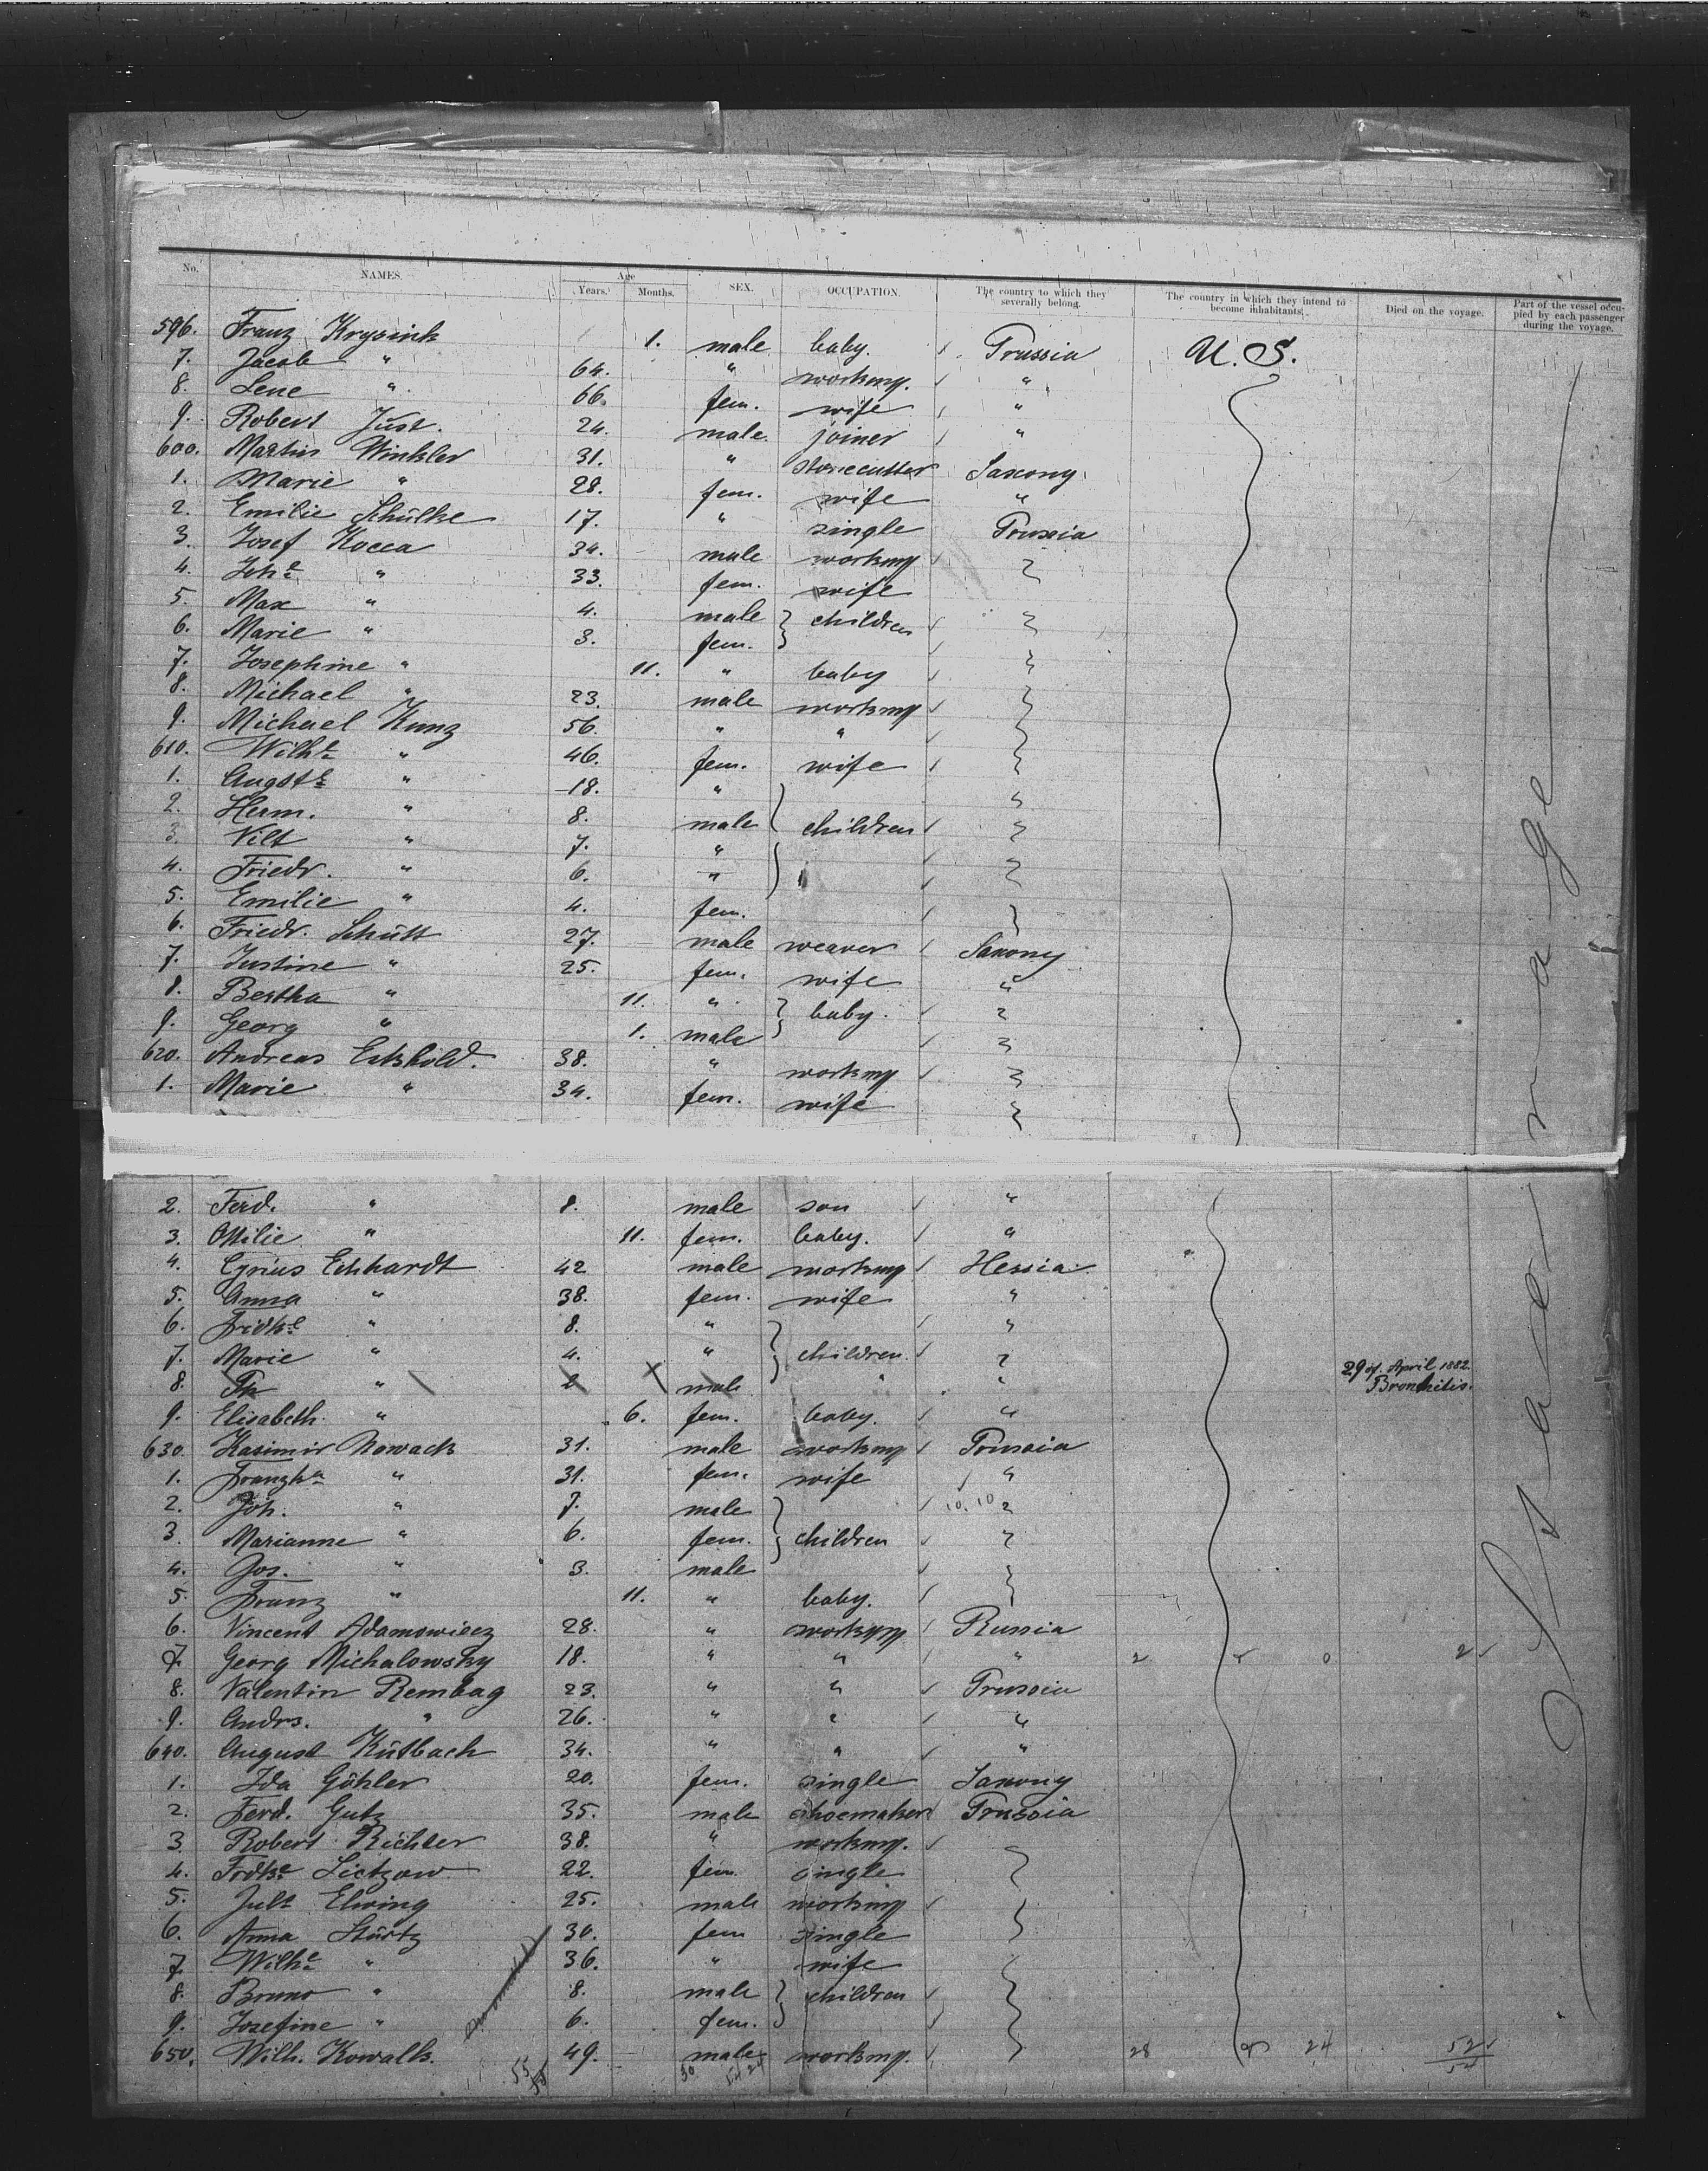 No. NAMES. Age Years. Months. SEX. OCCUPATION. The country to which they severally belong. The country in which they intend to become inhabitants. Died on the voyage. Part of the vessel occupied by each passenger during the voyage.
596. Franz Krysink 1. male baby. Prussia U. S.
7. Jacob " 64. " workmg. "
8. Lene " 66. fem. wife "
9. Robert Just. 24. male joiner "
600. Martin Winkler 31. " stonecutter Saxony
1. Marie " 28. fem. wife "
2. Emilie Schülke 17. " single Prussia
3. Josef Kocca 34. male workmg
4. Johe " 33. fem. wife
5. Max " 4. male } children
6. Marie " 3. fem.
7. Josephine " 11. " baby
8. Michael " 23. male workmg
9. Michael Kunz 56. " "
610. Wilhe " 46. fem. wife
1. Augste " 18. "
2. Herm. " 8. male children
3. " 7. "
4. Friedr. " 6. "
5. Emilie " 4. fem.
6. Friedr. Schütt 27. male weaver Saxony
7. Justine " 25. fem. wife "
8. Bertha " 11. " } baby. "
9. Georg " 1. male
620. Andreas Eckhold. 38. " workmg
1. Marie " 34. fem. wife
2. Ferd. " 8. male son "
3. Ottilie " 11. fem. baby. "
4. Cyrius Eckhardt 42 male workmg Hessia
5. Anna " 38. fem. wife "
6. Fridke " 8. " "
7. Marie " 4. " } children. "
8. " 2 X male " " 29 of April 1882. Bronchitis.
9. Elisabeth " 6. fem. baby. "
630. Kasimir Nowack 31. male workmg Prussia
1. Franzka " 31. fem. wife "
2. Joh. " 7. male 10. 10 "
3. Marianne " 6. fem. } children "
4. Jos. " 3. male
5. Franz " 11. " baby.
6. Vincent Adamowicz 28. " workmg Russia
7. Georg Michalowsky 18. " " " 2 0 2
8. Valentin Rembag 23. " " Prussia
9. Andrs. " 26. " " "
640. August Kütbach 34. " " "
1. Ida Göhler 20. fem. single Saxony
2. Ferd. Gutz 35. male shoemaker Prussia
3. Robert Richter 38. " workmg.
4. Frdke Lietzow 22. fem. single
5. Jult Elwing 25. male workmg
6. Anna Stürtz 30. fem single
7. Wilhe " 36. " wife
8. Bruno " 8. male } children
9. Josefine " 6. fem.
650. Wilh. Kowalk. 49. male workmg. 28 24 52
55 30 24 54
Steerage